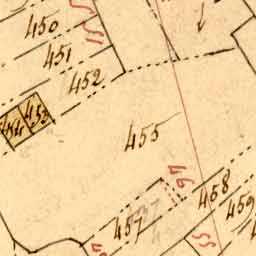 450
451
452
453
454
455
46
458
459
457
55